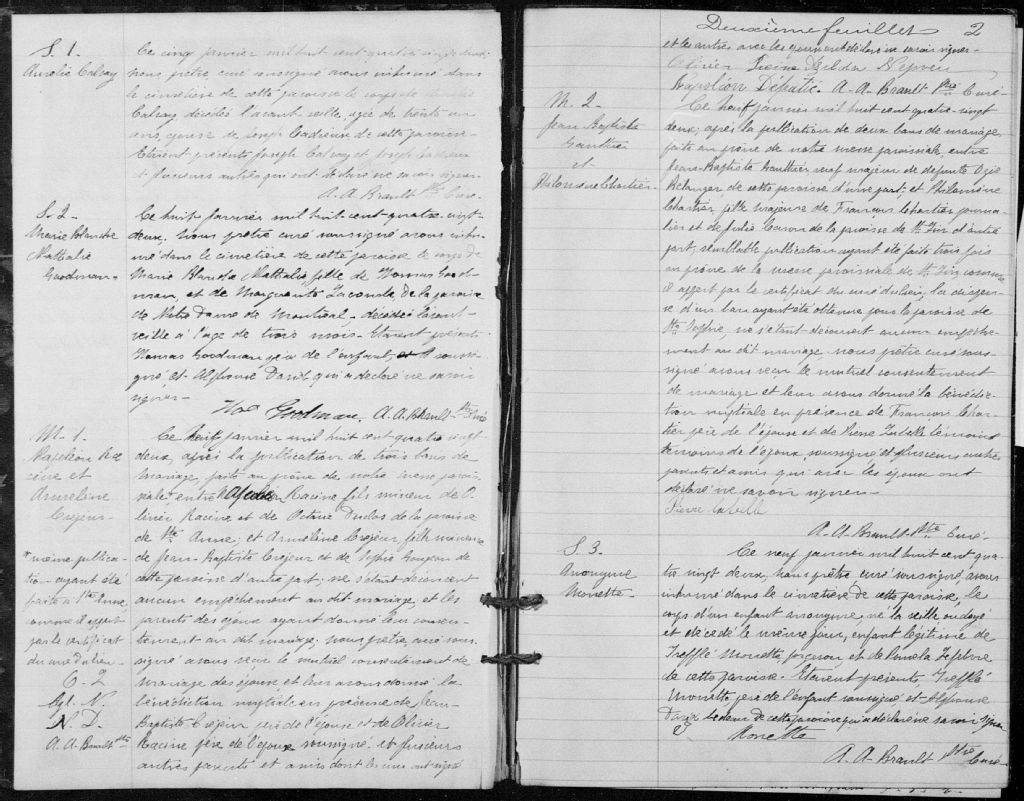 S. 1.
Aurélie Calvay
Ce cinq janvier mil huit cent quatre vingt deux
nous prêtre curé soussigné avons inhumé dans
le cimetière de cette paroisse le corps de Aurélie
Calvay décédée l'avant veille, agée de trente un
ans, épouse de Joseph Cadieux de cette paroisse.
Etaient présents Joseph Calvay et Joseph Cadieux
et plusieurs autres qui ont déclaré ne savoir signer.
A. A. Brault Ptre Curé.
S. 2.
Marie Blanche
Nathalie
Goodman
Ce huit janvier mil huit cent quatre vingt
deux, nous prêtre curé soussigné avons inhu-
mé dans le cimetière de cette paroisse le corps de
Marie Blanche Nathalie, fille de Thomas Good-
man, et de Marguerite Lacombe de la paroisse
de Notre Dame de Montréal, décédée l'avant
veille à l'age de trois mois. Etaient présents
Thomas Goodman, père de l'enfant, soussi-
gné, et Alphonse David qui a déclaré ne savoir
signer.
Thos Goodman. A. A. Brault Ptre Curé
M. 1.
Napoléon Ra
cine et
Armeline
Crépeau
* même publica-
tion ayant été
faite à Ste Anne,
comme il appert
par le certificat
du curé du lieu
O. D.
N. D.
A. A. Brault Ptre
Ce neuf janvier mil huit cent quatre vingt
deux, après la publication de trois bans de
mariage, faite au prône de notre messe parois-
siale entre Napoléon Racine fils mineur de O-
livier Racine et de Octavie Duclos de la paroisse
de Ste Anne, et Armeline Crépeau, fille mineure
de Jean-Baptiste Crépeau et de Sophie
cette paroisse d'autre part, ne s'étant découvert
aucun empêchement au dit mariage, et les
parents des époux ayant donné leur consen-
tement au dit mariage, nous prêtre, curé sous-
signé avons reçu le mutuel consentement de
mariage des époux et leur avons donné la
bénédiction nuptiale en présence de Jean-
Baptiste Crépeau père de l'épouse et de Olivier
Racine père de l'époux soussigné, et plusieurs
autres parents et amis dont les uns ont signé
Deuxième feuillet 2
et les autres avec les époux ont déclaré ne savoir signer.
Olivier Racine
Napoléon A. A. Brault Ptre Curé.
M. 2.
Jean Baptiste
Gauthier
et
Philomène Chartier
Ce neuf janvier mil huit cent quatre-vingt
deux, après la publication de deux bans de mariage
faite au prône de notre messe paroissiale, entre
Jean-Baptiste Gauthier, veuf majeur de défunte
Bélanger de cette paroisse d'une part; et Philomène
Chartier fille majeure de François Chartier journa-
lier et de Julie Caron de la paroisse de d'autre
part, semblable publication ayant été faite trois fois
au prône de la messe paroissiale de comme
il appert par le certificat du curé du lieu, la dispen-
se d'un ban ayant été obtenue pour la paroisse de
Ste Sophie, ne s'étant découvert aucun empêche-
ment au dit mariage, nous prêtre curé sous-
signé avons reçu le mutuel consentement
de mariage et leur avons donné la bénédic-
tion nuptiale en présence de François Char-
tier père de l'épouse et de Pierre Labelle témoins
de l'époux soussigné et plusieurs autres
parents et amis qui avec les époux ont
déclaré ne savoir signer.
Pierre Labelle
A. A. Brault Ptre Curé.
S. 3.
Anonyme
Monette
Ce neuf janvier mil huit cent qua-
tre vingt deux, nous prêtre curé soussigné, avons
inhumé dans le cimetière de cette paroisse, le
corps d'un enfant anonyme, né la veille ondoyé
et décédé le même jour, enfant légitime de
Trefflé Monette, et de Lefebvre
de cette paroisse. Etaient présents Trefflé
Monette père de l'enfant soussigné et Alphonse
David bedeau de cette paroisse qui a déclaré ne savoir signer
Monette
A. A. Brault Ptre Curé